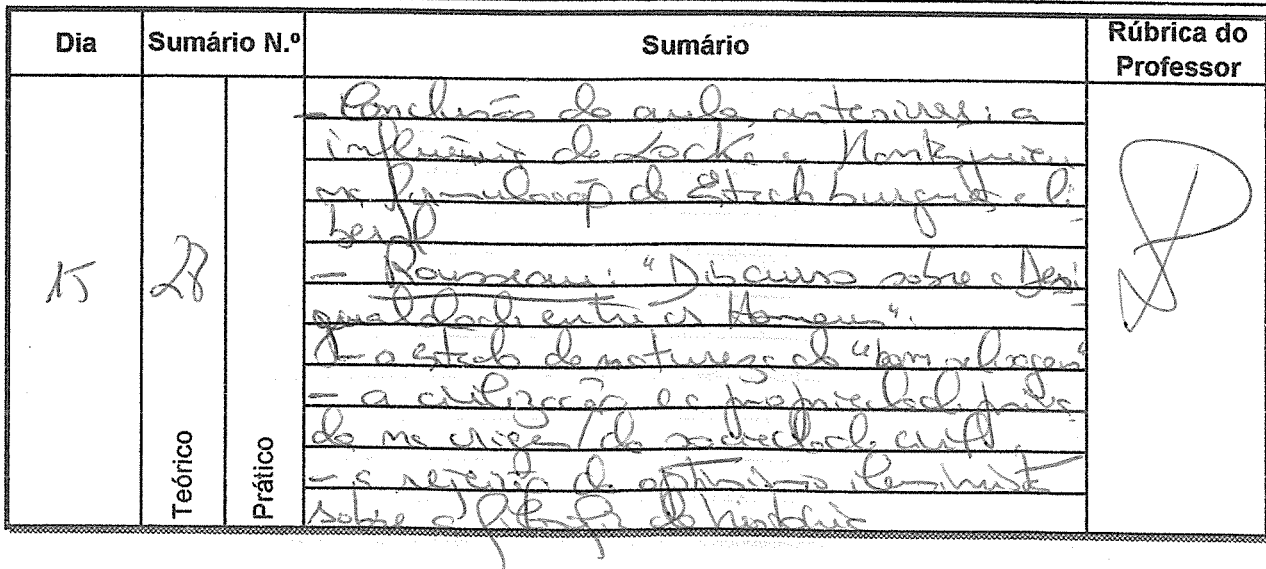 Dia Sumário N.º Sumário Rúbrica do Professor
15 28
Teórico Prático
- Conclusão da aula anteriores: a
influência de Locke e Montesquieu
na formulação do Estado burguês e li-
beral
- Rousseau: "Discurso sobre a Desi-
gualdade entre os Homens".
- o estado de natureza do "bom selvagem"
- a civilização e a propriedade priva-
da na origem da sociedade civil.
- a rejeição do optimismo iluminista
sobre a filosofia da história